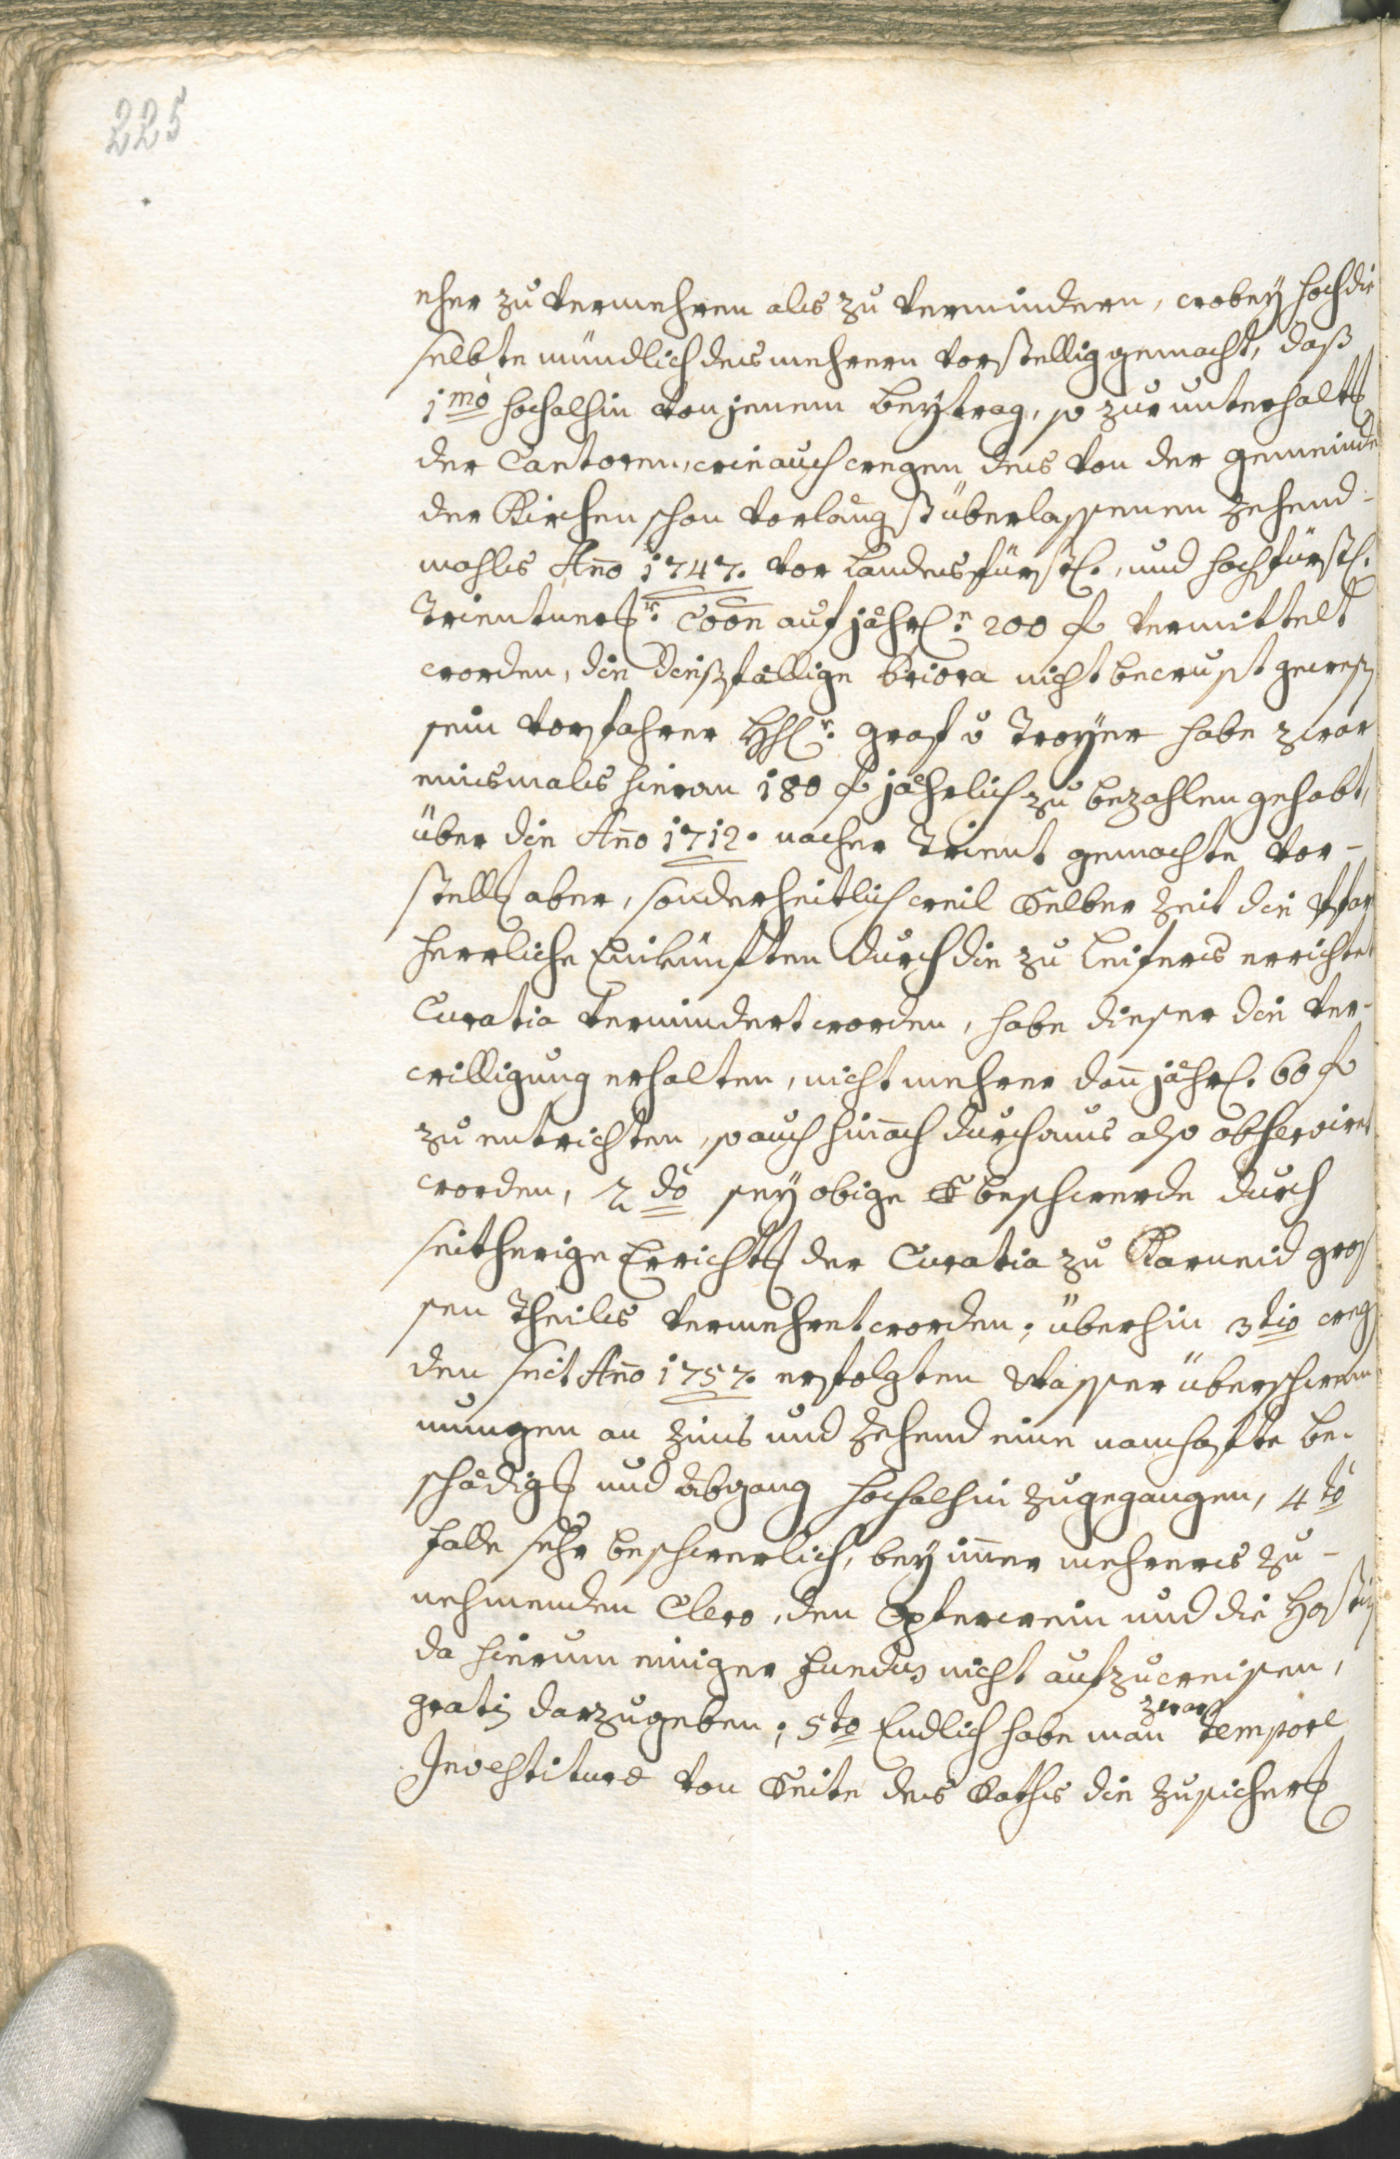 225
eher zu vermehren als zu vermindern, wobey hochdie
selbte mündlich des mehrern vorstellig gemacht, daß
1mo hochalhin von jenem beytrag, so zur unterhaltg
der Cantoren, wie auch wegen des von der gemeinde
der Kirchen schon vorlängst überlassenen Zehend-
mahls Ao 1747. vor Landensfürstl., und hochfürstl.
Trientnersr. Coon auf jährln 200 f vermittelt
worden, die dießfällige priora nicht bewust gewest
sein vorfahrer HHl. graf v Troyer habe zwar
einsmals hieran 180 f jährlich zu bezahlen gehabt,
über die Ao 1712. nacher Trient gemachte vor-
stellg aber, sonderheitlich weil Selber Zeit die Pfar
herrliche Einkünften durch die zu Leifers errichtet
Curatia vermindert worden, habe dieser die ver-
willigung erhalten, nicht mehrer dan jährl. 60 f
zu entrichten, so auch hinach durchaus also observirt
worden, 2do sey obige beschwerde durch
seitherige Errichtg der Curatia zu Karneid gros
sen theils vermehret worden; überhin 3tio weg
den seit Ao 1757. erfolgten Wasser überschwem
mungen an Zins und Zehend eine namhafte be-
schädigg und abgang hochalhin zugegangen, 4to
falle sehr beschwerlich, bey imer mehrers zu-
nehmenden Clero, den Opferwein und die Hostien
da hierum einiger fundus nicht aufzuweisen,
gratis darzugeben; 5to Endlich habe man zwar tempore
Investiturae von Seite des Raths die Zusicherg